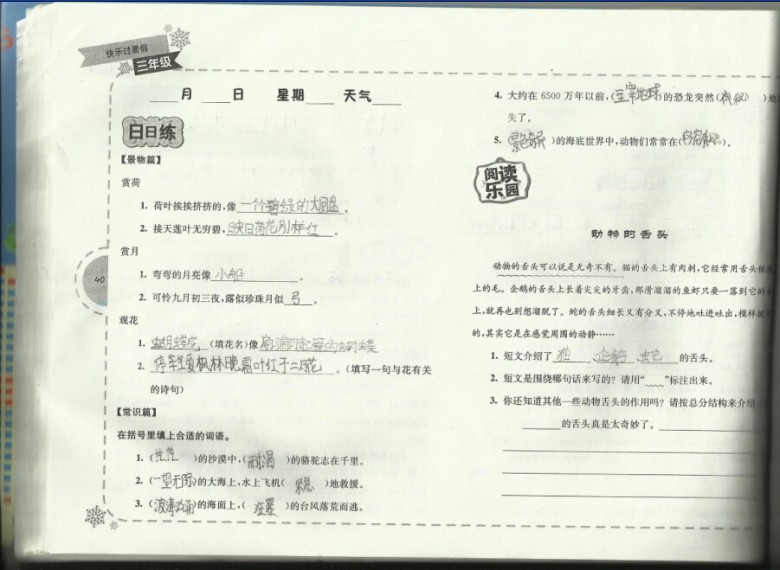 快乐过暑假
三年级
____月____日 星期____ 天气____
日日练
【景物篇】
赏荷
1. 荷叶挨挨挤挤的,像 一个个碧绿的大圆盘 。
2. 接天莲叶无穷碧, 映日荷花别样红 。
赏月
1. 弯弯的月亮像 小船 。
2. 可怜九月初三夜,露似珍珠月似 弓 。
观花
1. 蝴蝶花 (填花名)像
2. 停车坐爱枫林晚霜叶红于二月花 。(填写一句与花有关
的诗句)
【常识篇】
在括号里填上合适的词语。
1. (茫茫)的沙漠中,(耐渴)的骆驼志在千里。
2. (一望无际)的大海上,水上飞机(紧急)地救援。
3. ( )的海面上,(狂暴)的台风落荒而逃。
40
4. 大约在 6500 万年以前,( )的恐龙突然( )地
失了。
5. ( )的海底世界中,动物们常常在( )。
阅读乐园
动物的舌头
动物的舌头可以说是无奇不有。猫的舌头上有肉刺,它经常用舌头
上的毛。企鹅的舌头上长着尖尖的牙齿,那滑溜溜的鱼虾只要一落到它的
上,就再也别想溜脱了。蛇的舌头细长又有分叉,不停地吐进吐出,模样
的,其实它是在感觉周围的动静……
1. 短文介绍了 猫 企鹅 蛇 的舌头。
2. 短文是围绕哪句话来写的? 请用“﹏﹏”标注出来。
3. 你还知道其他一些动物舌头的作用吗? 请按总分结构来介绍
______的舌头真是太奇妙了。